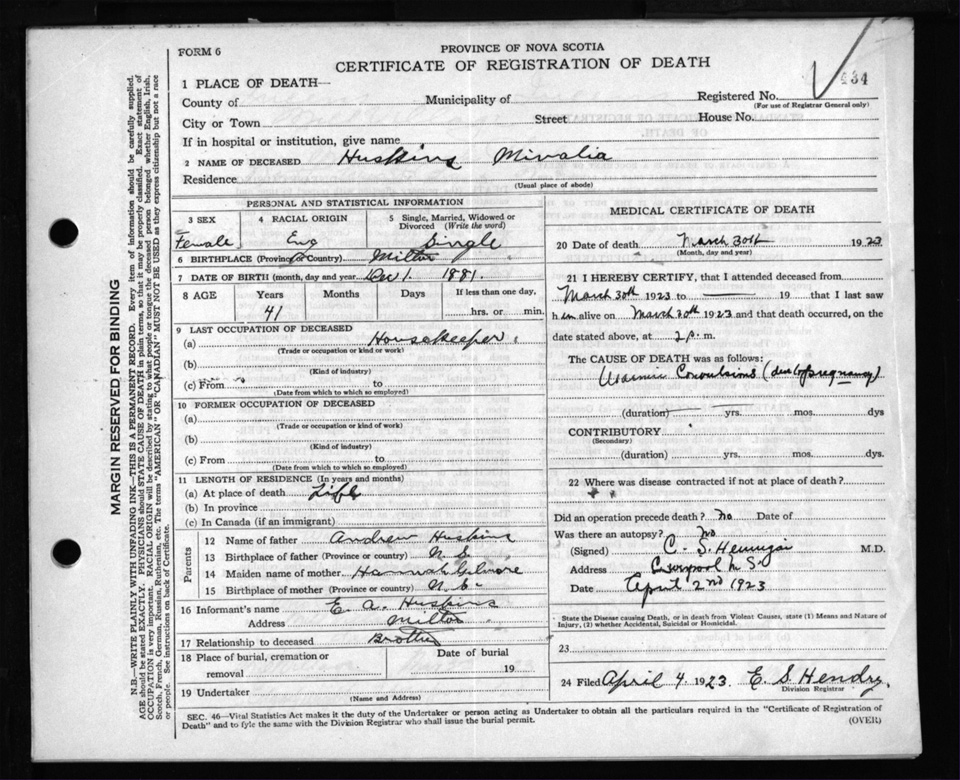 FORM 6
PROVINCE OF NOVA SCOTIA
CERTIFICATE OF REGISTRATION OF DEATH
434
1 PLACE OF DEATH—
County of Municipality of Registered No.
(For use of Registrar General only)
City or Town Street House No.
If in hospital or institution, give name
2 NAME OF DECEASED Huskins Minalia
Residence
(Usual place of abode)
PERSONAL AND STATISTICAL INFORMATION
3 SEX 4 RACIAL ORIGIN 5 Single, Married, Widowed or Divorced (Write the word)
Female Eng Single
6 BIRTHPLACE (Province or Country) Milton
7 DATE OF BIRTH (month, day and year Dec 1. 1881.
8 AGE Years Months Days If less than one day,
41 hrs. or min.
9 LAST OCCUPATION OF DECEASED
(a) Housekeeper
(Trade or occupation or kind or work)
(b)
(Kind of industry)
(c) From to
(Date from which to which so employed)
10 FORMER OCCUPATION OF DECEASED
(a)
(Trade or occupation or kind of work)
(b)
(Kind of industry)
(c) From to
(Date from which to which so employed)
11 LENGTH OF RESIDENCE (In years and months)
(a) At place of death Life
(b) In province
(c) In Canada (if an immigrant)
Parents
12 Name of father Andrew Huskins
13 Birthplace of father (Province or country) N. S.
14 Maiden name of mother Hannah Gilmore
15 Birthplace of mother (Province or country)
16 Informant's name E. A. Huskins
Address Milton
17 Relationship to deceased Brother
18 Place of burial, cremation or removal Date of burial
19
19 Undertaker
(Name and Address)
MEDICAL CERTIFICATE OF DEATH
20 Date of death March 30th 1923
(Month, day and year)
21 I HEREBY CERTIFY, that I attended deceased from
March 30th 1923 to — 19 that I last saw
h alive on March 30th 1923 and that death occurred, on the
date stated above, at 2 p. m.
The CAUSE OF DEATH was as follows:
Convulsions (due to pregnancy)
(duration) yrs. mos. dys
CONTRIBUTORY
(Secondary)
(duration) yrs. mos. dys.
22 Where was disease contracted if not at place of death?
Did an operation precede death? No Date of
Was there an autopsy? No
(Signed) C. S. M.D.
Address Liverpool N. S.
Date April 2nd 1923
State the Disease causing Death, or in death from Violent Causes, state (1) Means and Nature of
Injury, (2) whether Accidental, Suicidal or Homicidal.
23
24 Filed April 4 1923. E. S. Hendry.
Division Registrar
SEC. 46—Vital Statistics Act makes it the duty of the Undertaker or person acting as Undertaker to obtain all the particulars required in the "Certificate of Registration of
Death" and to fyle the same with the Division Registrar who shall issue the burial permit.
(OVER)
MARGIN RESERVED FOR BINDING
N.B.—WRITE PLAINLY WITH UNFADING INK—THIS IS A PERMANENT RECORD. Every item of information should be carefully supplied.
AGE should be stated EXACTLY. PHYSICIANS should STATE CAUSE OF DEATH in plain terms, so that it may be properly classified. Exact statement of
OCCUPATION is very important. RACIAL ORIGIN will be described by stating to what people or tongue the deceased person belonged whether English, Irish,
Scotch, French, German, Russian, Ruthenian, etc. The terms "AMERICAN" OR "CANADIAN" MUST NOT BE USED as they express citizenship but not a race
or people. See instructions on back of Certificate.